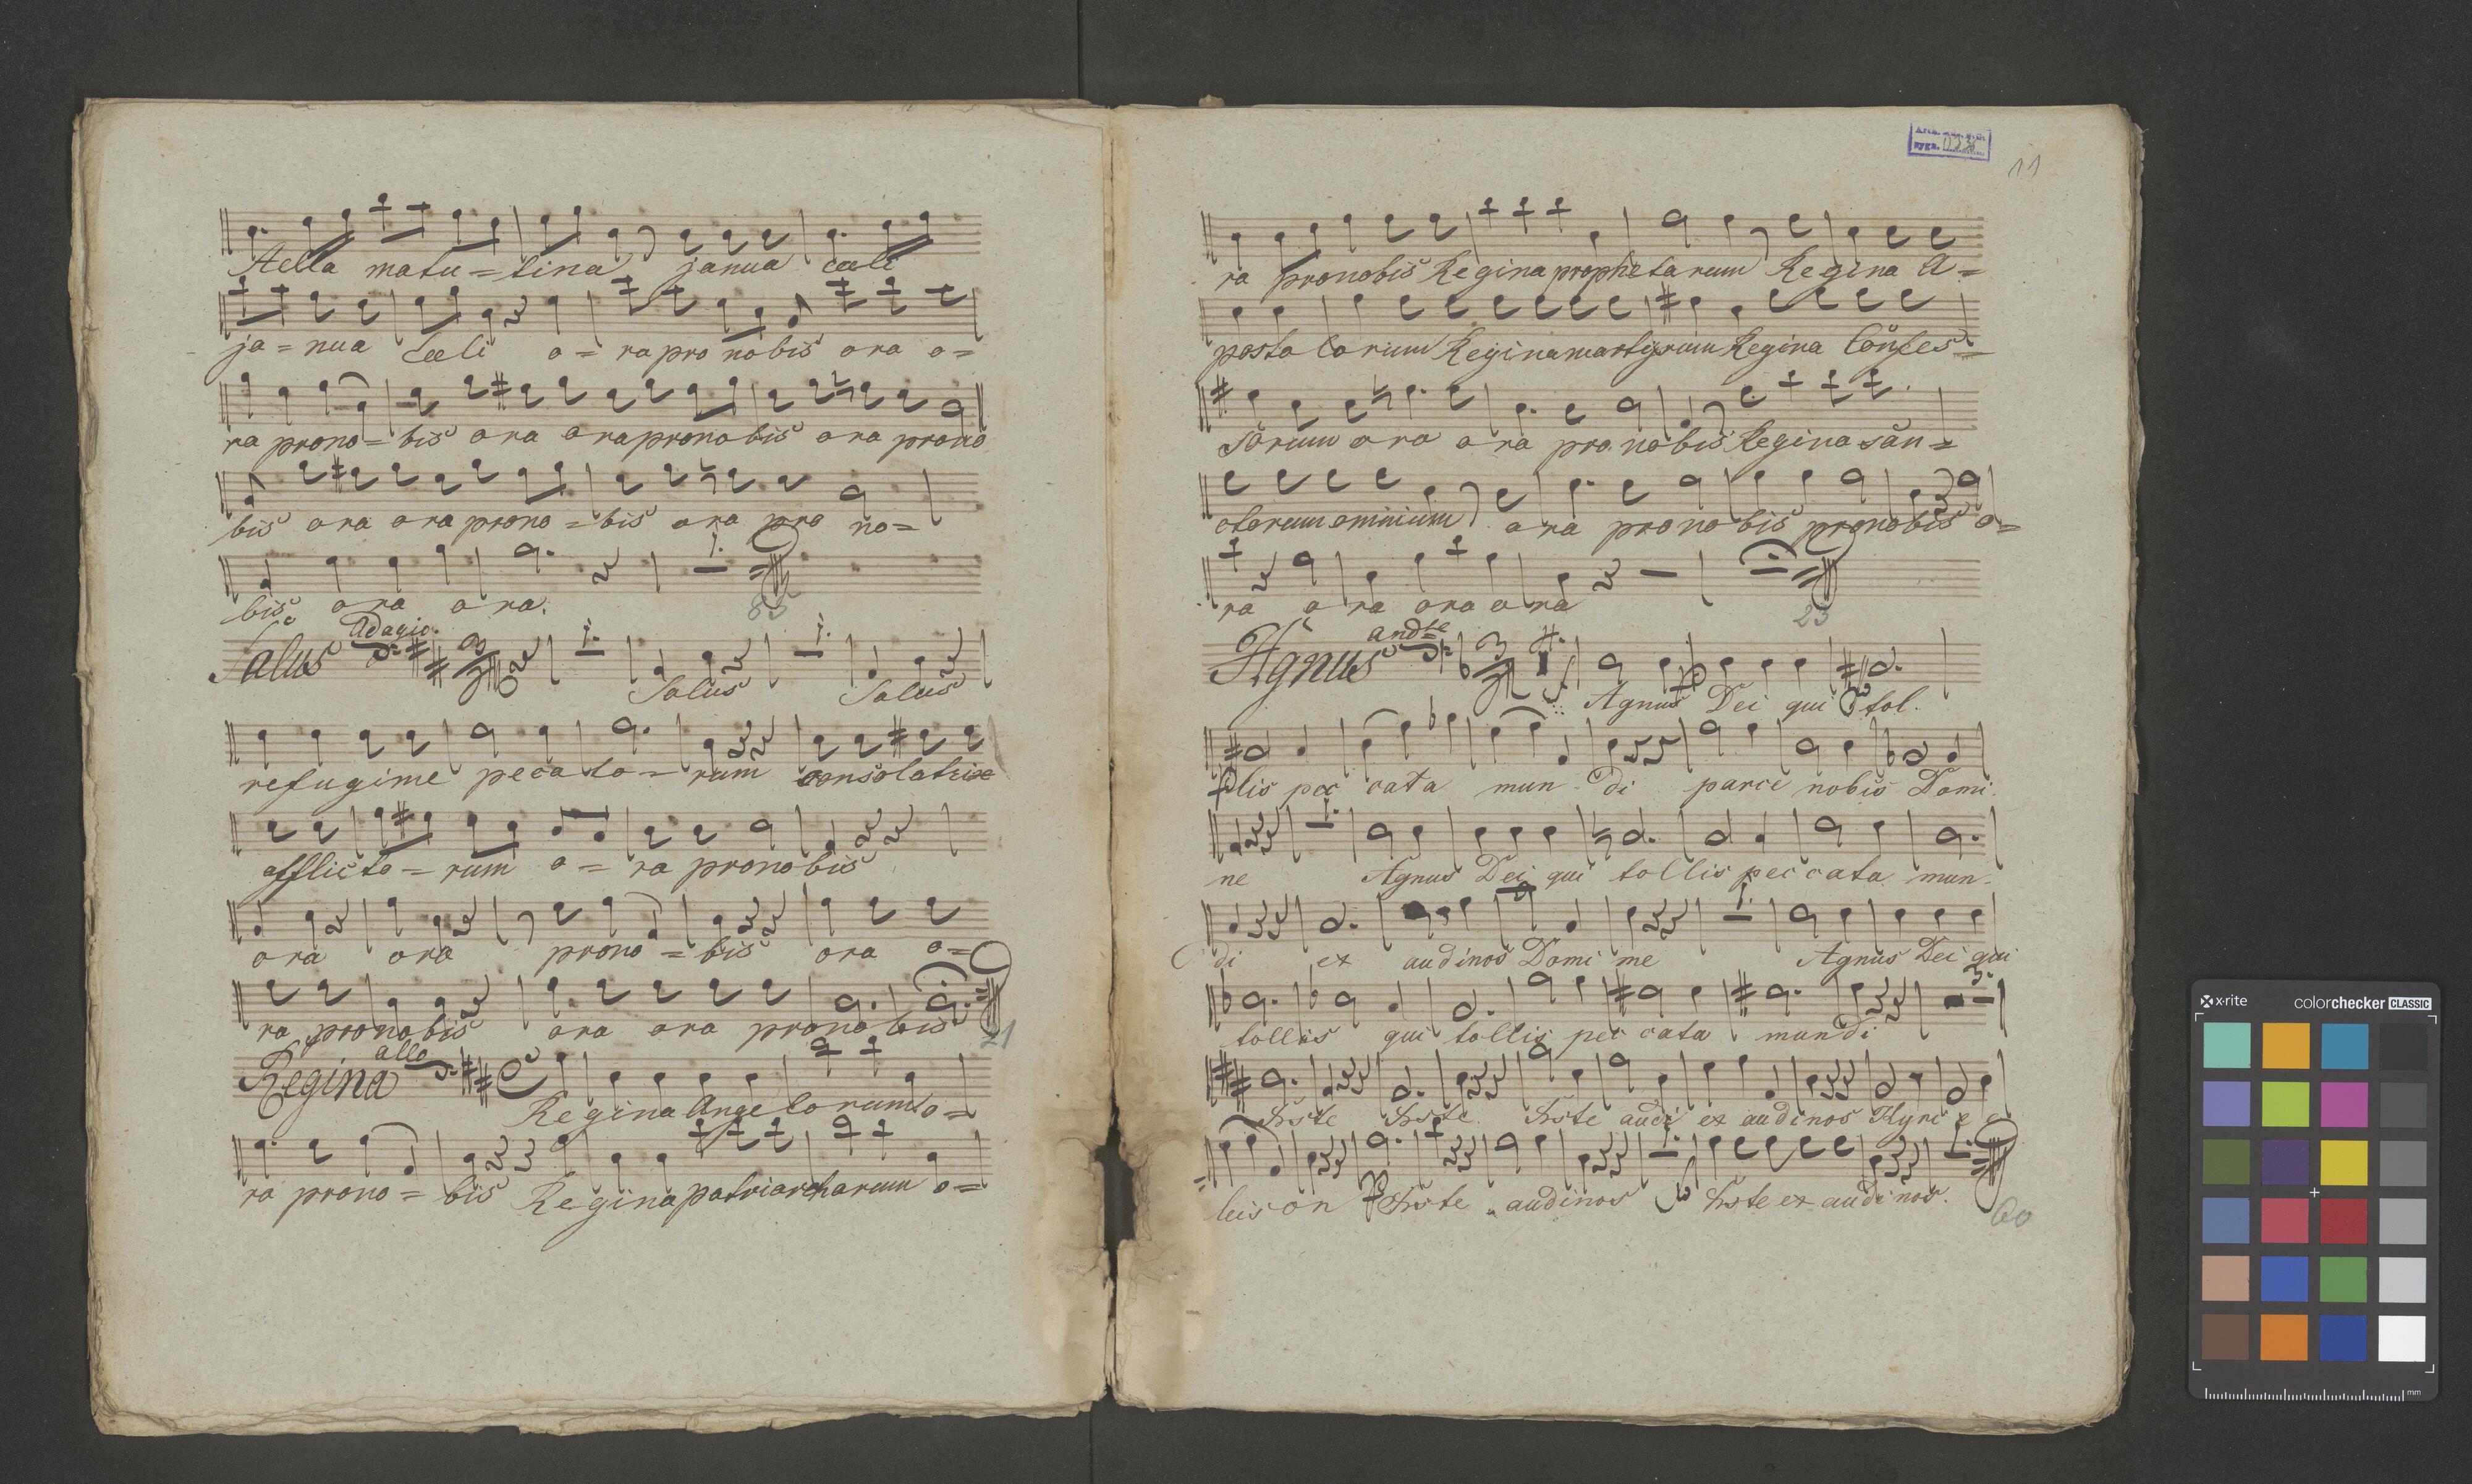 Stella matu = tina janua cæli
ja = nua Cæli o = ra pro nobis ora o =
ra prono = bis ora ora pronobis ora prono
bis ora ora prono = bis ora pro no =
bis ora ora.
83
Salus Adagio. 3 Salus Salus
refugime pecato = rum consolatrix
afflicto = rum o = ra pronobis
ora ora prono = bis ora o =
ra pronobis ora ora pronobis
21
Regina allo Regina Angelorum o =
ra prono = bis Regina patriarcharum o =
11
ra pronobis Regina prophetarum Regina A =
postolorum Regina martyrum Regina Confes =
sorum ora ora pro nobis Regina san =
ctorum omnium ora pronobis pronobis o =
ra ora ora ora
23
Agnus andte 3 Agnus Dei qui tol.
llis pec cata mun di parce nobis Domi.
ne Agnus Dei qui tollis peccata mun.
di ex audinos Domi me Agnus Dei qui
tollis qui tollis pec cata mundi
Xrste Xrste Xrste audi ex audinos Kyri e e
leison Xrste audinos Xrste ex audinos.
60
x·rite colorchecker CLASSIC
mm